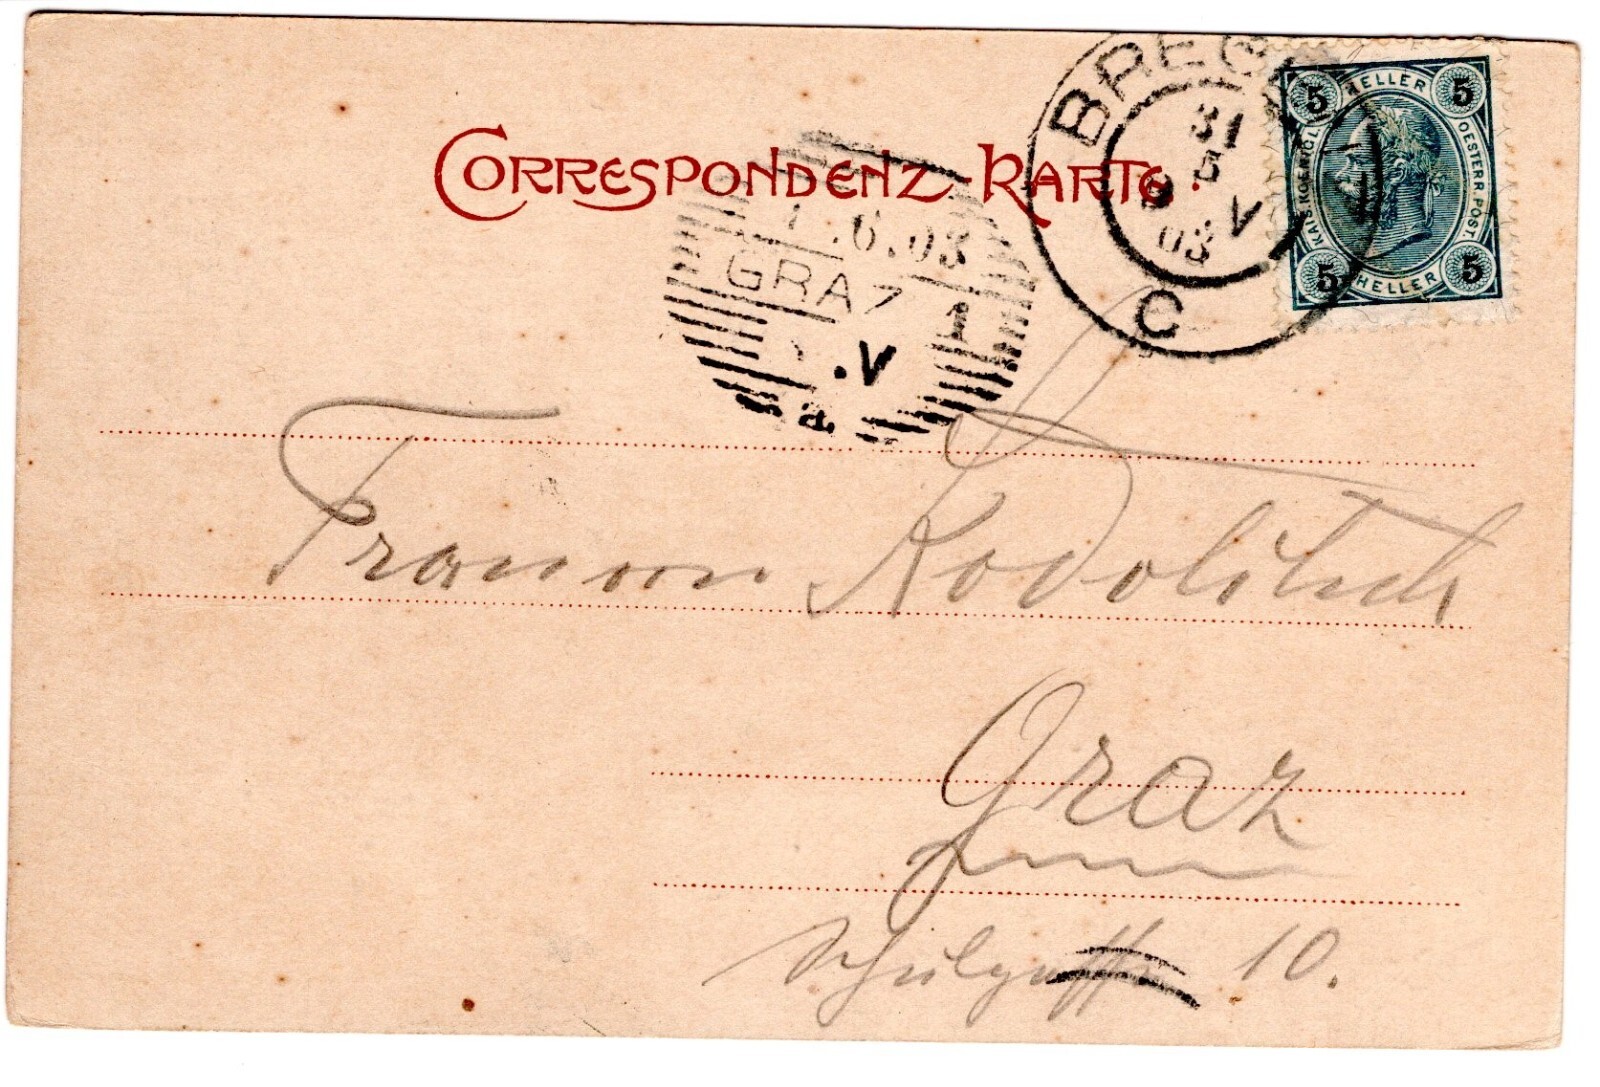 CORRESPONDENZ-KARTE.
BREG
31
5
03
V
C
5 HELLER 5
KAIS. KOENIGL. OESTERR. POST.
5 HELLER 5
1.6.03
GRAZ 1
.V
a
Frau von
Graz
Schulgasse 10.